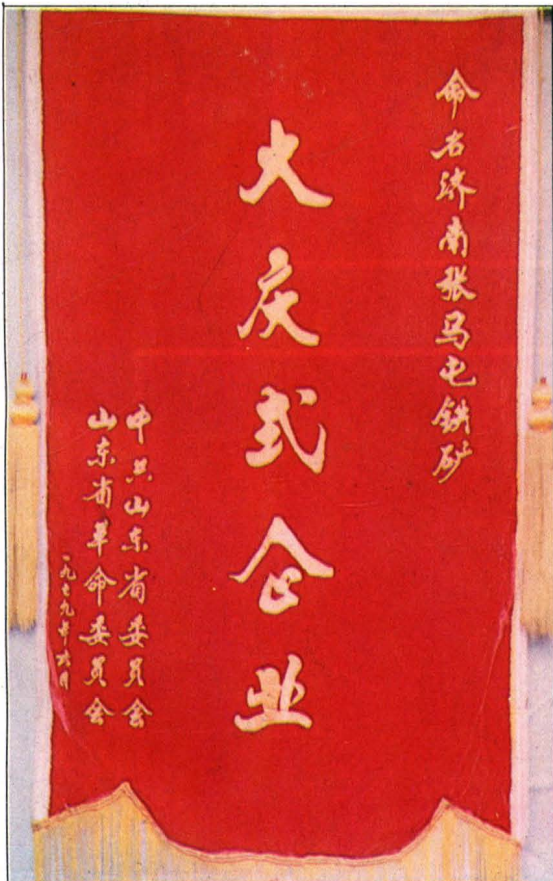 命名济南张马屯铁矿
大庆式企业
中共山东省委员会
山东省革命委员会
一九七九年六月